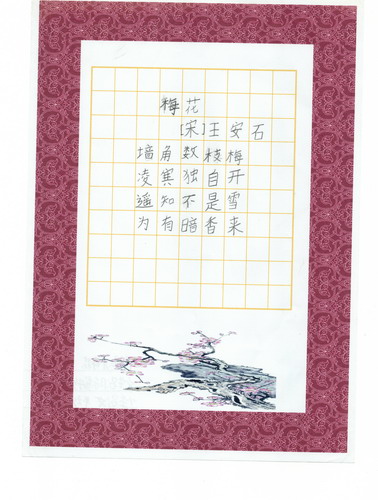 梅花
[宋]王安石
墙角数枝梅
凌寒独自开
遥知不是雪
为有暗香来